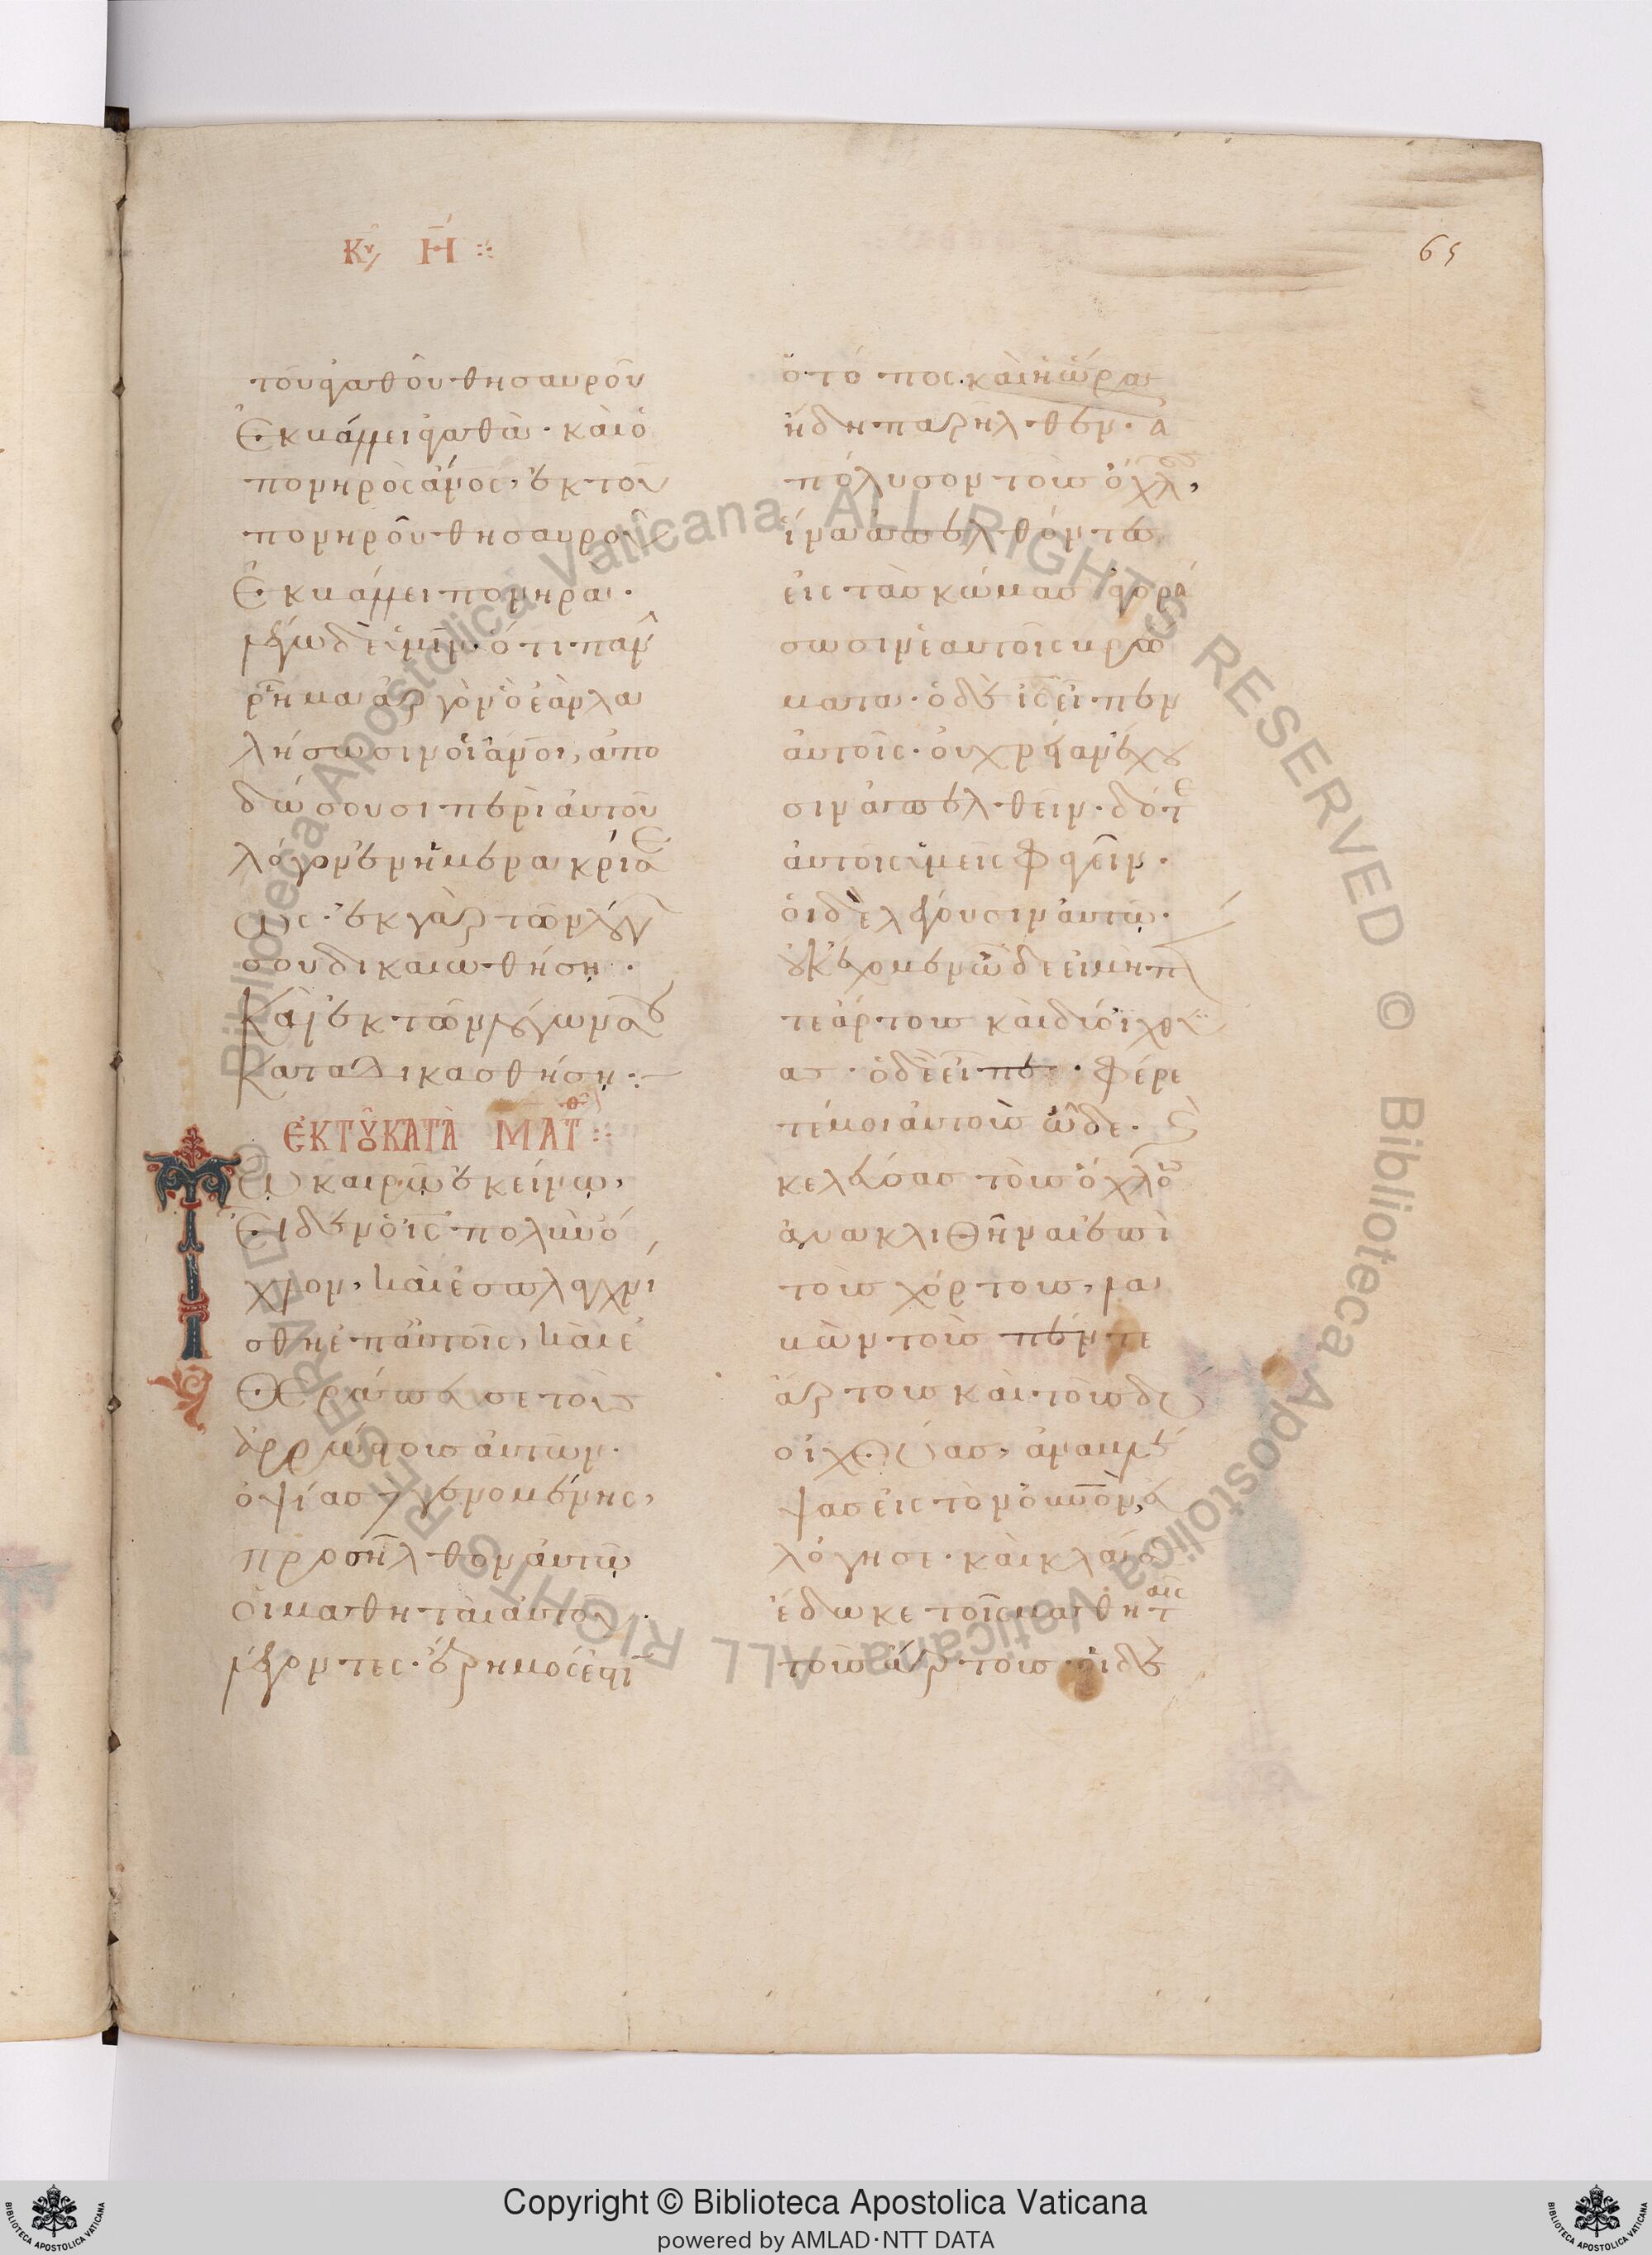 Κυ Η
65
τοῦ ἀγαθοῦ θησαυροῦ
ἐκβάλλει ἀγαθά· καὶ ὁ
πονηρὸς ἄνος, ἐκ τοῦ
πονηροῦ θησαυροῦ
ἐκβάλλει πονηρά·
λέγω δὲ ὑμῖν· ὅτι πᾶν
ῥῆμα ἀργὸν ὃ ἐὰν λα
λήσωσιν οἱ ἄνοι, ἀπο
δώσουσι περὶ αὐτοῦ
λόγον ἐν ἡμέρα κρίσε
ως· ἐκ γὰρ τῶν λόγων
σου δικαιωθήσῃ·
καὶ ἐκ τῶν λόγων σου
καταδικασθήσῃ:
ἐκ τοῦ κατὰ Ματθ
Τῶ καιρῶ ἐκείνω,
εἶδεν ὁ ις πολὺν ὄ
χλον, καὶ ἐσπλαγχνί
σθη ἐπ αὐτοῖς, καὶ ἐ
θεράπευσε τοὺς
ἀρρώστους αὐτῶν·
ὀψίας γενομένης,
προσῆλθον αὐτῶ
οἱ μαθηταὶ αὐτοῦ
λέγοντες· ἔρημός ἐστι
ὁ τόπος· καὶ ἡ ὥρα
ἤδη παρῆλθεν· ἀ
πόλυσον τοὺς ὄχλους,
ἵνα ἀπελθόντες
εἰς τὰς κώμας ἀγορά
σωσιν ἑαυτοῖς βρώ
ματα· ὁ δὲ ις εἶπεν
αὐτοῖς· οὐ χρείαν ἔχου
σιν ἀπελθεῖν· δότε
αὐτοῖς ὑμεῖς φαγεῖν·
οἱ δὲ λέγουσιν αὐτῶ·
οὐκ ἔχομεν ὧδε εἰ μὴ πέν
τε ἄρτους καὶ δύο ἰχθύ
ας· ὁ δὲ εἶπε· φέρε
τέ μοι αὐτοὺς ὧδε· καὶ
κελεύσας τοὺς ὄχλους
ἀνακλιθῆναι ἐπὶ
τοὺς χόρτους, λα
βὼν τοὺς πέντε
ἄρτους καὶ τοὺς δύ
ο ἰχθύας, ἀναβλέ
ψας εἰς τὸν οὐνον, εὐ
λόγησε· καὶ κλάσας
ἔδωκε τοῖς μαθηταῖς
τοὺς ἄρτους· οἱ δὲ
Copyright © Biblioteca Apostolica Vaticana
powered by AMLAD·NTT DATA